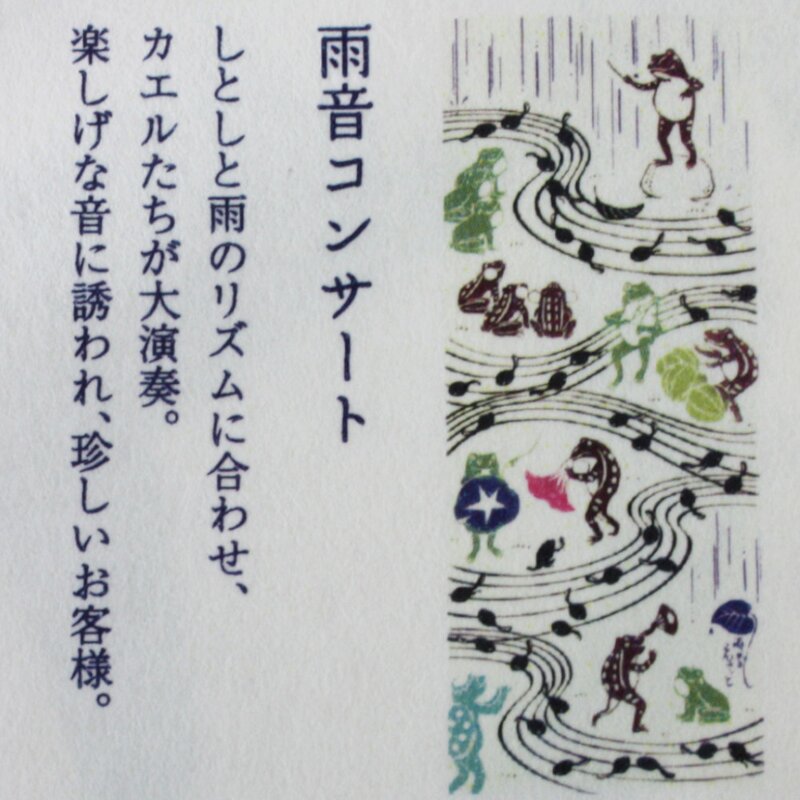 雨音コンサート
しとしと雨のリズムに合わせ、
カエルたちが大演奏。
楽しげな音に誘われ、珍しいお客様。